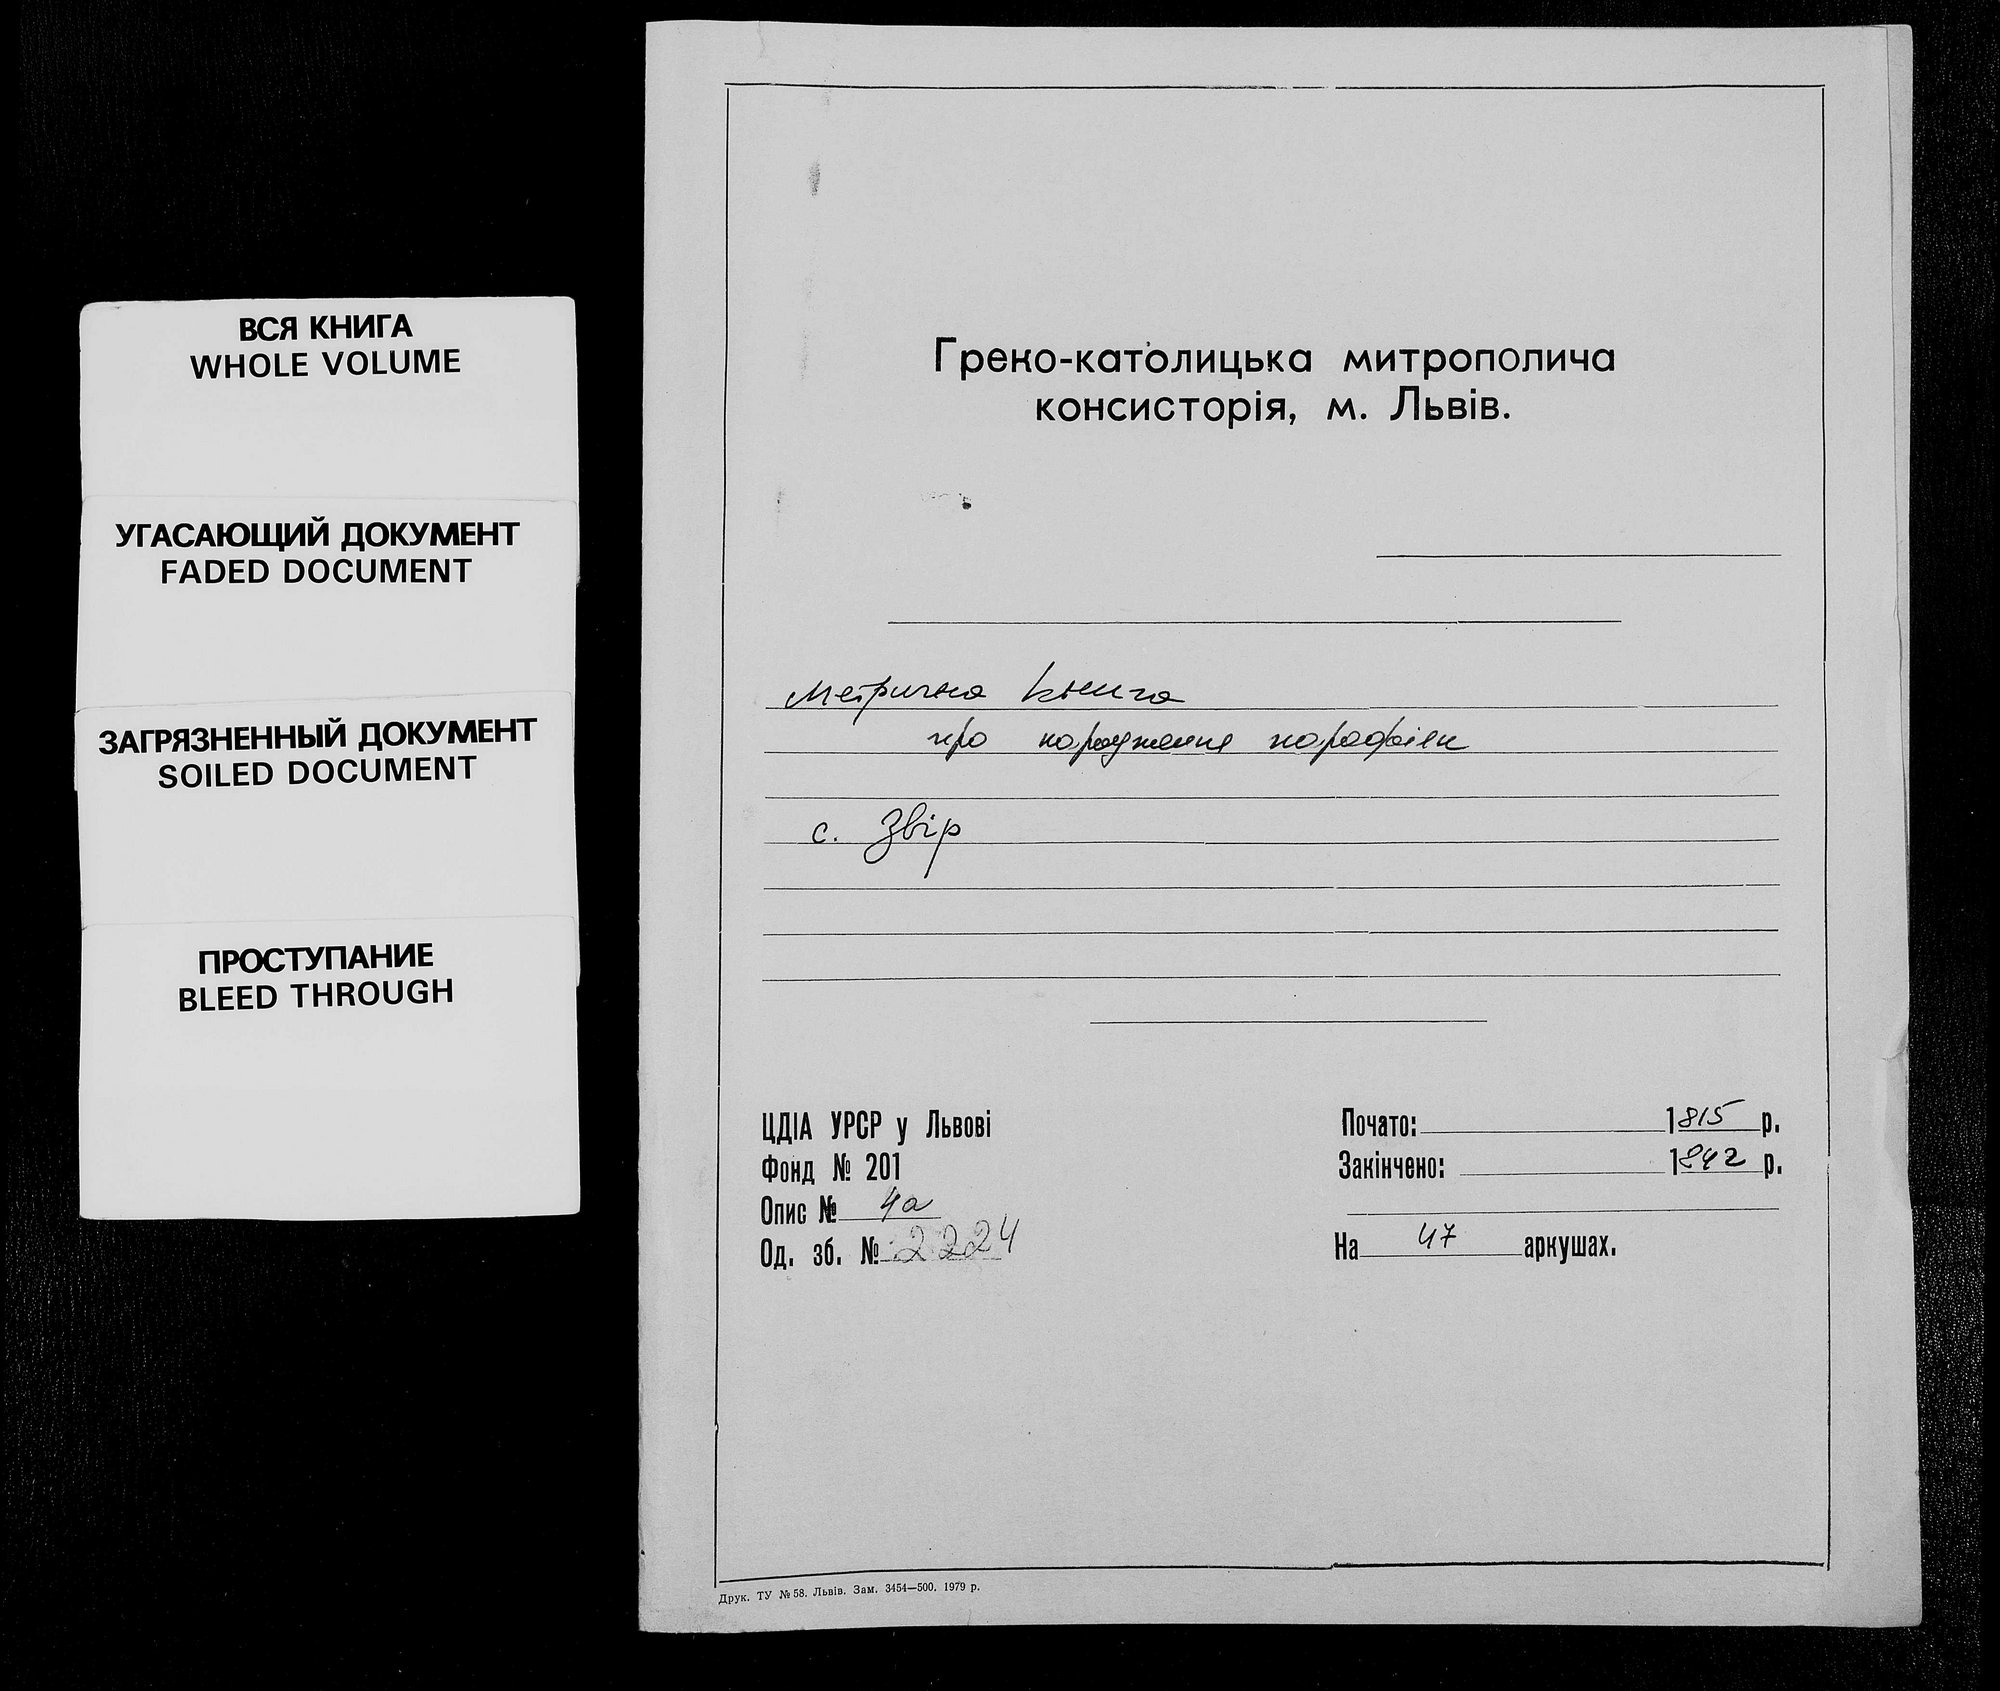 ВСЯ КНИГА
WHOLE VOLUME
УГАСАЮЩИЙ ДОКУМЕНТ
FADED DOCUMENT
ЗАГРЯЗНЕННЫЙ ДОКУМЕНТ
SOILED DOCUMENT
ПРОСТУПАНИЕ
BLEED THROUGH
Греко-католицька митрополича
консисторія, м. Львів.
Метрична книга
про народження парафіян
с. Звір
ЦДІА УРСР у Львові
Фонд № 201
Опис № 4а
Од. зб. № 2224
Почато: 1815 р.
Закінчено: 1842 р.
На 47 аркушах.
Друк. ТУ № 58. Львів. Зам. 3454—500. 1979 р.